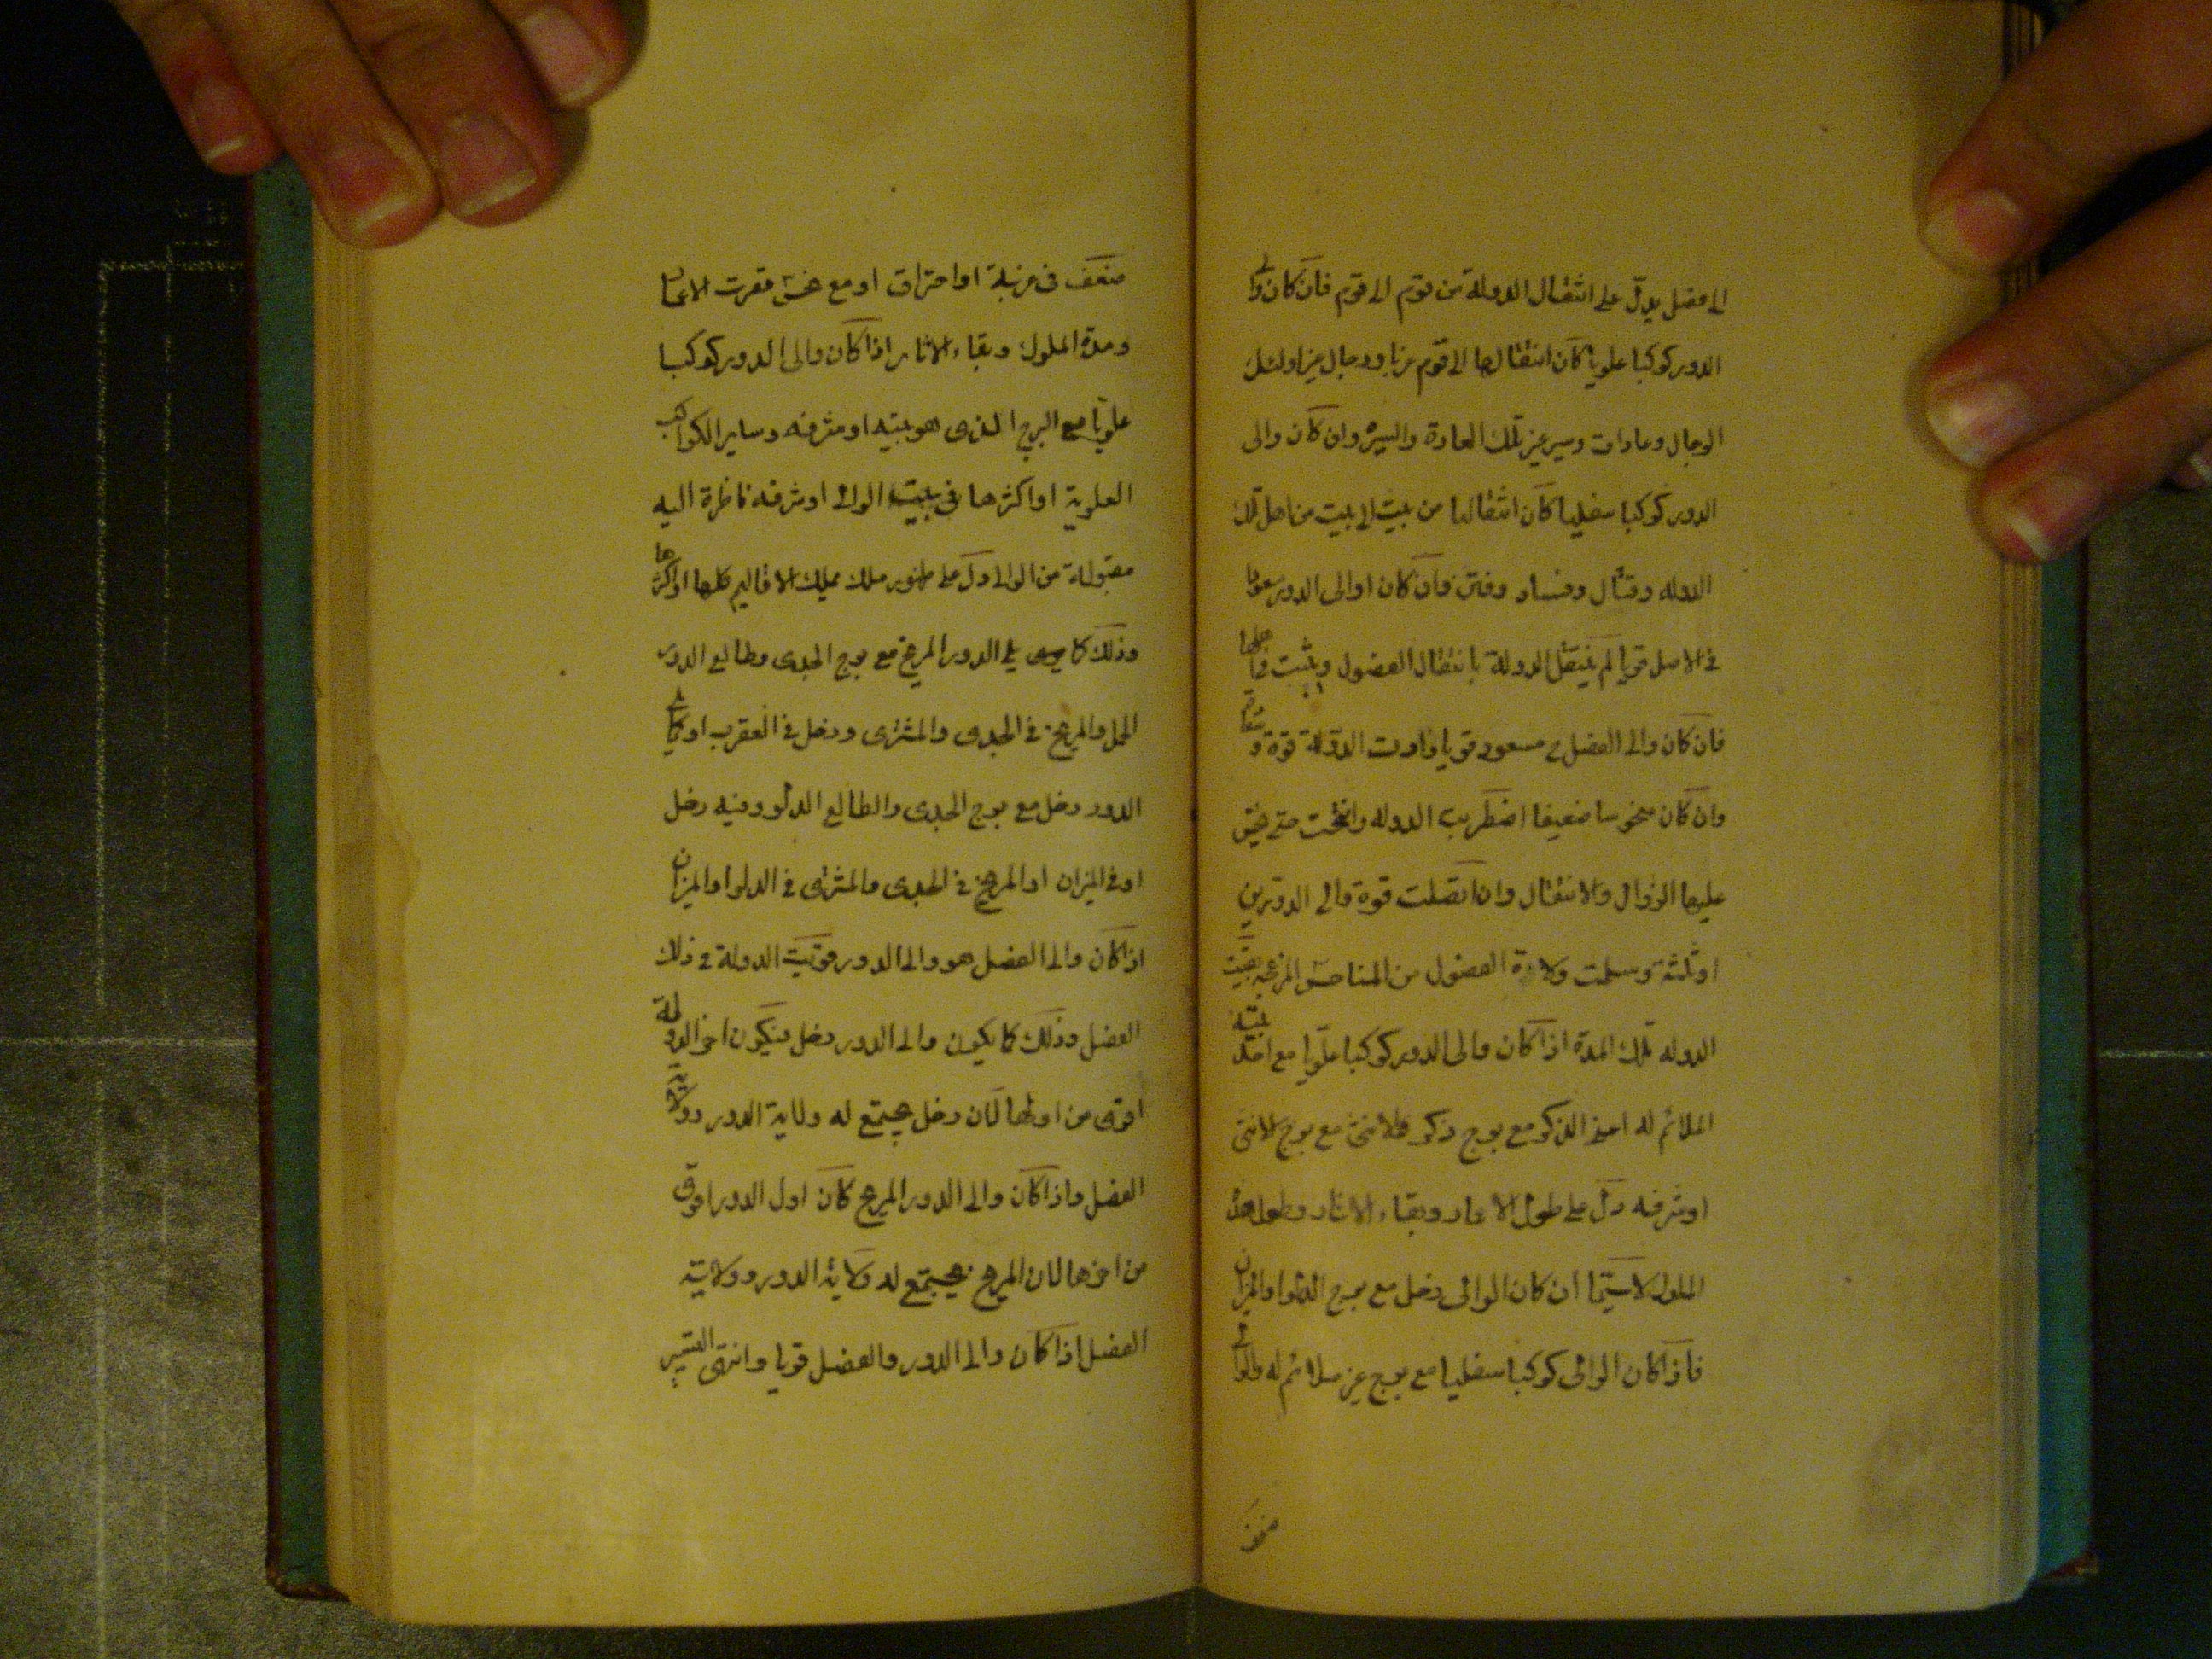 الى فصل يدلّ على انتقال الدولة من قوم الى قوم فان كان والى
الدور كوكبا علويا كان انتقالها الى قوم غربا ورجال غير اولئك
الرجال وعادات وسير غير تلك العادة والسيرة وان كان والى
الدور كوكبا سفليا كان انتقالها من بيت الى بيت من اهل تلك
الدوله وقتال وفساد وفتن وان كان اوالى الدور مسعودا
فى الاصل قويا لم ينتقل الدولة بانتقال الفصول ويثبت
فان كان والى الفصل مسعود قويا زادت الدولة قوة و
وان كان منحوسا ضعيفا اضطربت الدوله حتى
عليها الزوال والانتقال وان اتصلت قوة والى الدورين
او ثلثة وسلمت ولاة الفصول من المناحس المزعجه بقيت
الدوله تلك المدة اذا كان والى الدور كوكبا علويا مع
الملائم له اعنى الذكر مع برج ذكر والانثى مع برج الانثى
او شرفه دل على طول الاعمار وبقاء الاثار وطول
الملوك لا سيما ان كان الوالى زحل مع برج الدلو او الميزان
فاذا كان الوالى كوكبا سفليا مع برج غير ملائم له والوالى
ضعف
ضعف فى غربلة او احتراق او مع نحس قصرت الاعمار
ومدة الملوك وبقاء الاثار اذا كان والى الدور كوكبا
علويا مع البرج الذى هو بيته او شرفه وساير الكواكب
العلوية او اكثرها فى بيت الوالى او شرفه ناظرة اليه
مقبولة من الوالى دل على ظهور ملك يملك الاقاليم كلها او اكثرها
وذلك كما يلى الدور المريخ مع برج الجدى وطالع الدور
الحمل والمريخ فى الجدى والمشترى وزحل فى العقرب او
الدور زحل مع برج الجدى والطالع الدلو وفيه زحل
او فى الميزان او المريخ فى الجدى والمشترى فى الدلو او الميزان
اذا كان والى الفصل هو والى الدور قويت الدولة فى ذلك
الفصل وذلك كما يكون والى الدور زحل فيكون اخر الدولة
اقوى من اولها لان زحل يجتمع له ولاية الدور وولاية
الفصل واذا كان والى الدور المريخ كان اول الدور اقوى
من اخرها لان المريخ يجتمع له ولاية الدور وولايته
الفصل اذا كان والى الدور والفصل قويا وانتهى التسيير